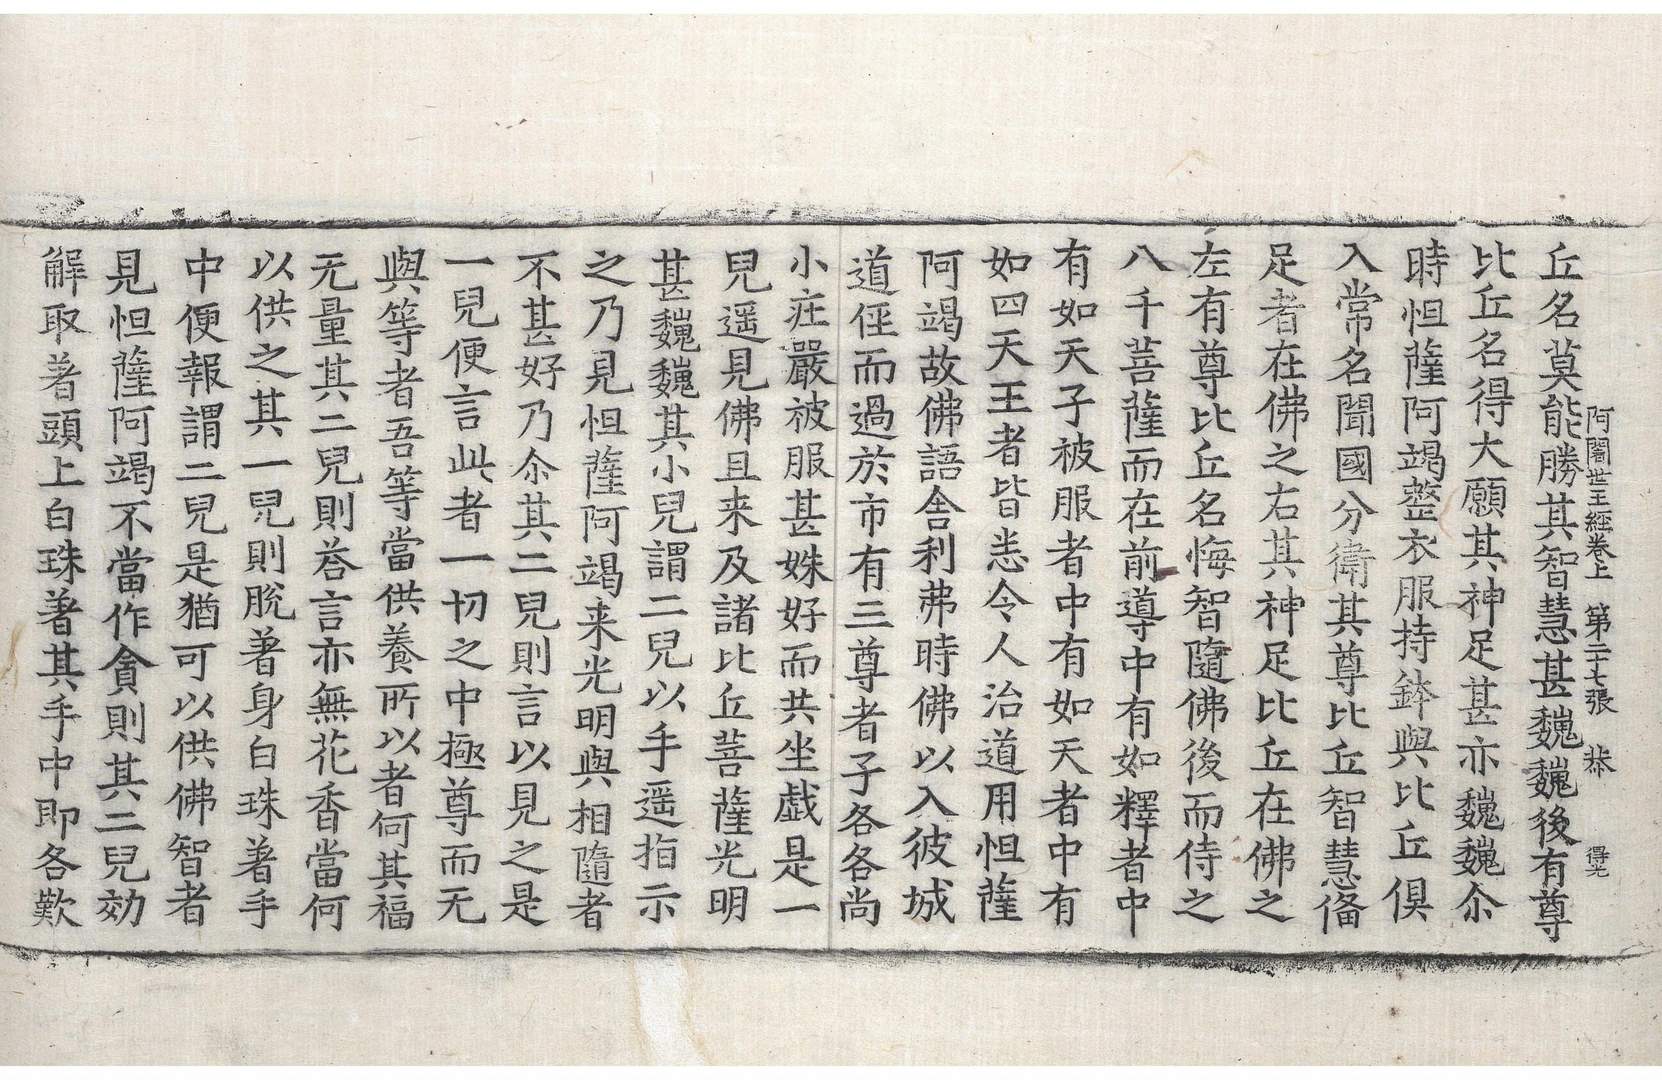 阿闍世王經卷上 第二十七張 恭 得光
丘名莫能勝其智慧甚巍巍後有尊
比丘名得大願其神足甚亦巍巍尒
時怛薩阿竭整衣服持鉢與比丘俱
入常名聞國分衛其尊比丘智慧俻
足者在佛之右其神足比丘在佛之
左有尊比丘名悔智隨佛後而侍之
八千菩薩而在前導中有如釋者中
有如天子被服者中有如天者中有
如四天王者皆悉令人治道用怛薩
阿竭故佛語舍利弗時佛以入彼城
道俓而過於市有三尊者子各各尚
小庄嚴被服甚姝好而共坐戱是一
兒遥見佛且来及諸比丘菩薩光明
甚巍巍其小兒謂二兒以手遥指示
之乃見怛薩阿竭来光明與相隨者
不甚好乃尒其二兒則言以見之是
一兒便言此者一切之中極尊而无
與等者吾等當供養所以者何其福
无量其二兒則荅言亦無花香當何
以供之其一兒則脫著身白珠著手
中便報謂二兒是猶可以供佛智者
見怛薩阿竭不當作貪則其二兒効
解取著頭上白珠著其手中即各歎